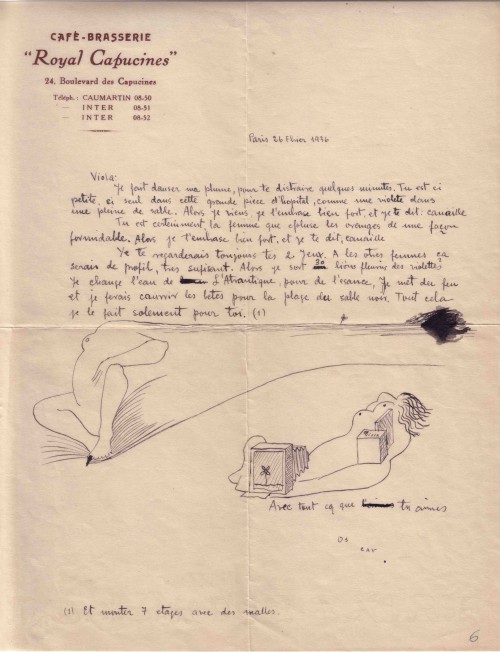 CAFÉ-BRASSERIE
"Royal Capucines"
24. Boulevard des Capucines
Téléph.: CAUMARTIN 08-50
— INTER 08-51
— INTER 08-52
Paris 26 1936
Viola:
Je fait danser ma plume, pour te distraire quelques minutes. Tu est ci
petite, ci seul dans cette grande piece d'hopital, comme une violete dans
une pleine de sable. Alors je viens, je t'embrase bien fort, et je te dit: canaille
Tu est certeinment, la femme que epluse les oranges de une façon
formindable. Alors je t'embrase bien fort, et je te dit, canaille
Je te regarderais toujours tes 2 yeux. A les otres femmes ça
serais de profil, tres sufisant. Alors je sort 30 fleuris des violettes
Je change l'eau de L'Atrantique, pour de l'esance, Je met du feu
et je ferais caurrir les betes pour la plage du sable noir. Tout cela
je le fait solement pour toi. (1)
Avec tout cq que tu aimes
Os
car
(1) Et monter 7 etages avec des malles.
6